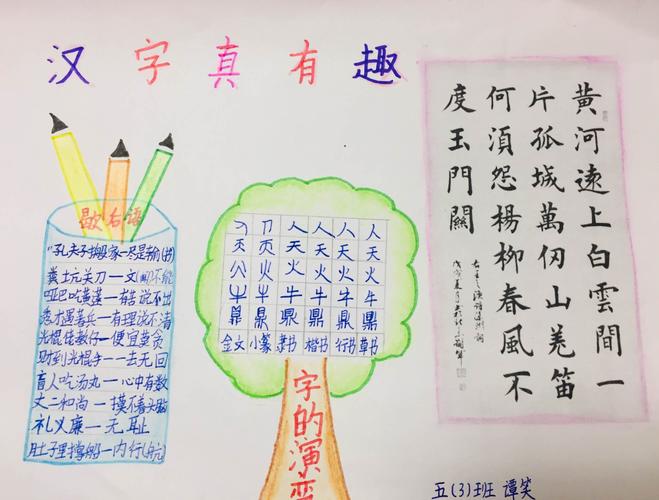 汉字真有趣
歇后语
"孔夫子搬家—尽是输(书)
粪土坑关刀—文(闻)不能
哑巴吃黄莲—有苦说不出
秀才遇着兵—有理说不清
光棍佬教仔—便宜莫贪
财到光棍手—一去无回
盲人吃汤丸—心中有数
丈二和尚—摸不着头脑
礼义廉—无耻
肚子里撑船—内行(航)
人 天 火 牛 鼎
金文 小篆 隶书 楷书 行书 草书
字的演变
黄河远上白雲間一
片孤城萬仞山羌笛
何須怨楊柳春風不
度玉門關
五(3)班 谭笑